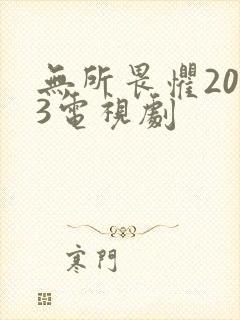 無所畏懼20
3電視劇
寒門